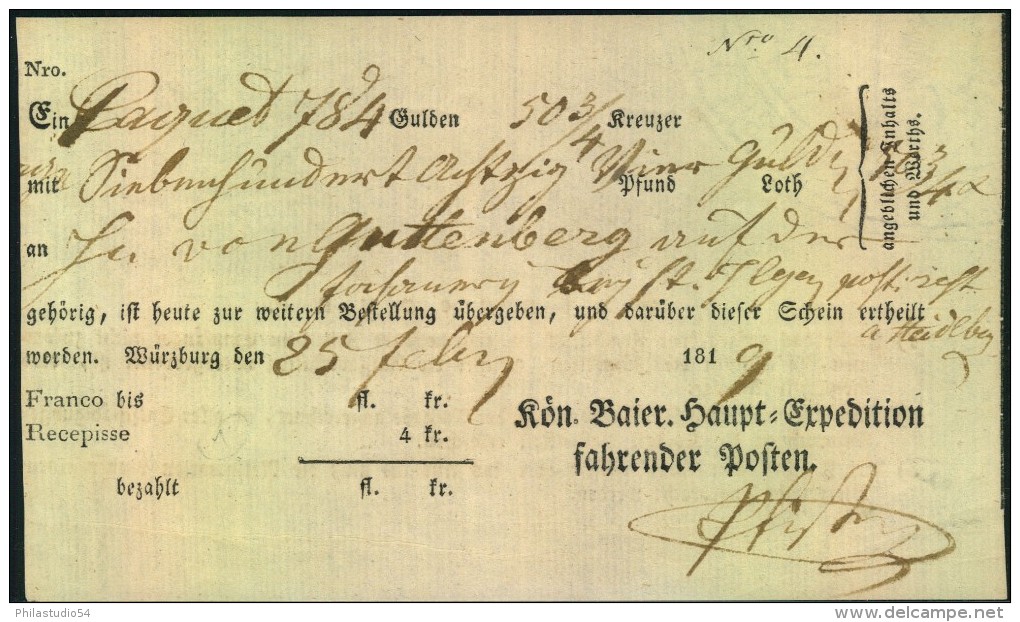 Nro. 4.
Nro.
Ein Paquet 784 Gulden 50 3/4 Kreuzer
mit Siebenhundert Achtzig Vier Guld 50 3/4 x
Pfund Loth
angeblichen Inhalts
und Werths.
an von Guttenberg auf der
St. Ilgen
gehörig, ist heute zur weitern Bestellung übergeben, und darüber dieser Schein ertheilt
a Heidlbg
worden. Würzburg den 25 Febr 1819
Franco bis fl. kr.
Recepisse 4 kr.
bezahlt fl. kr.
Kön. Baier. Haupt-Expedition
fahrender Posten.
Pfister
Philastudio54
www.delcampe.net